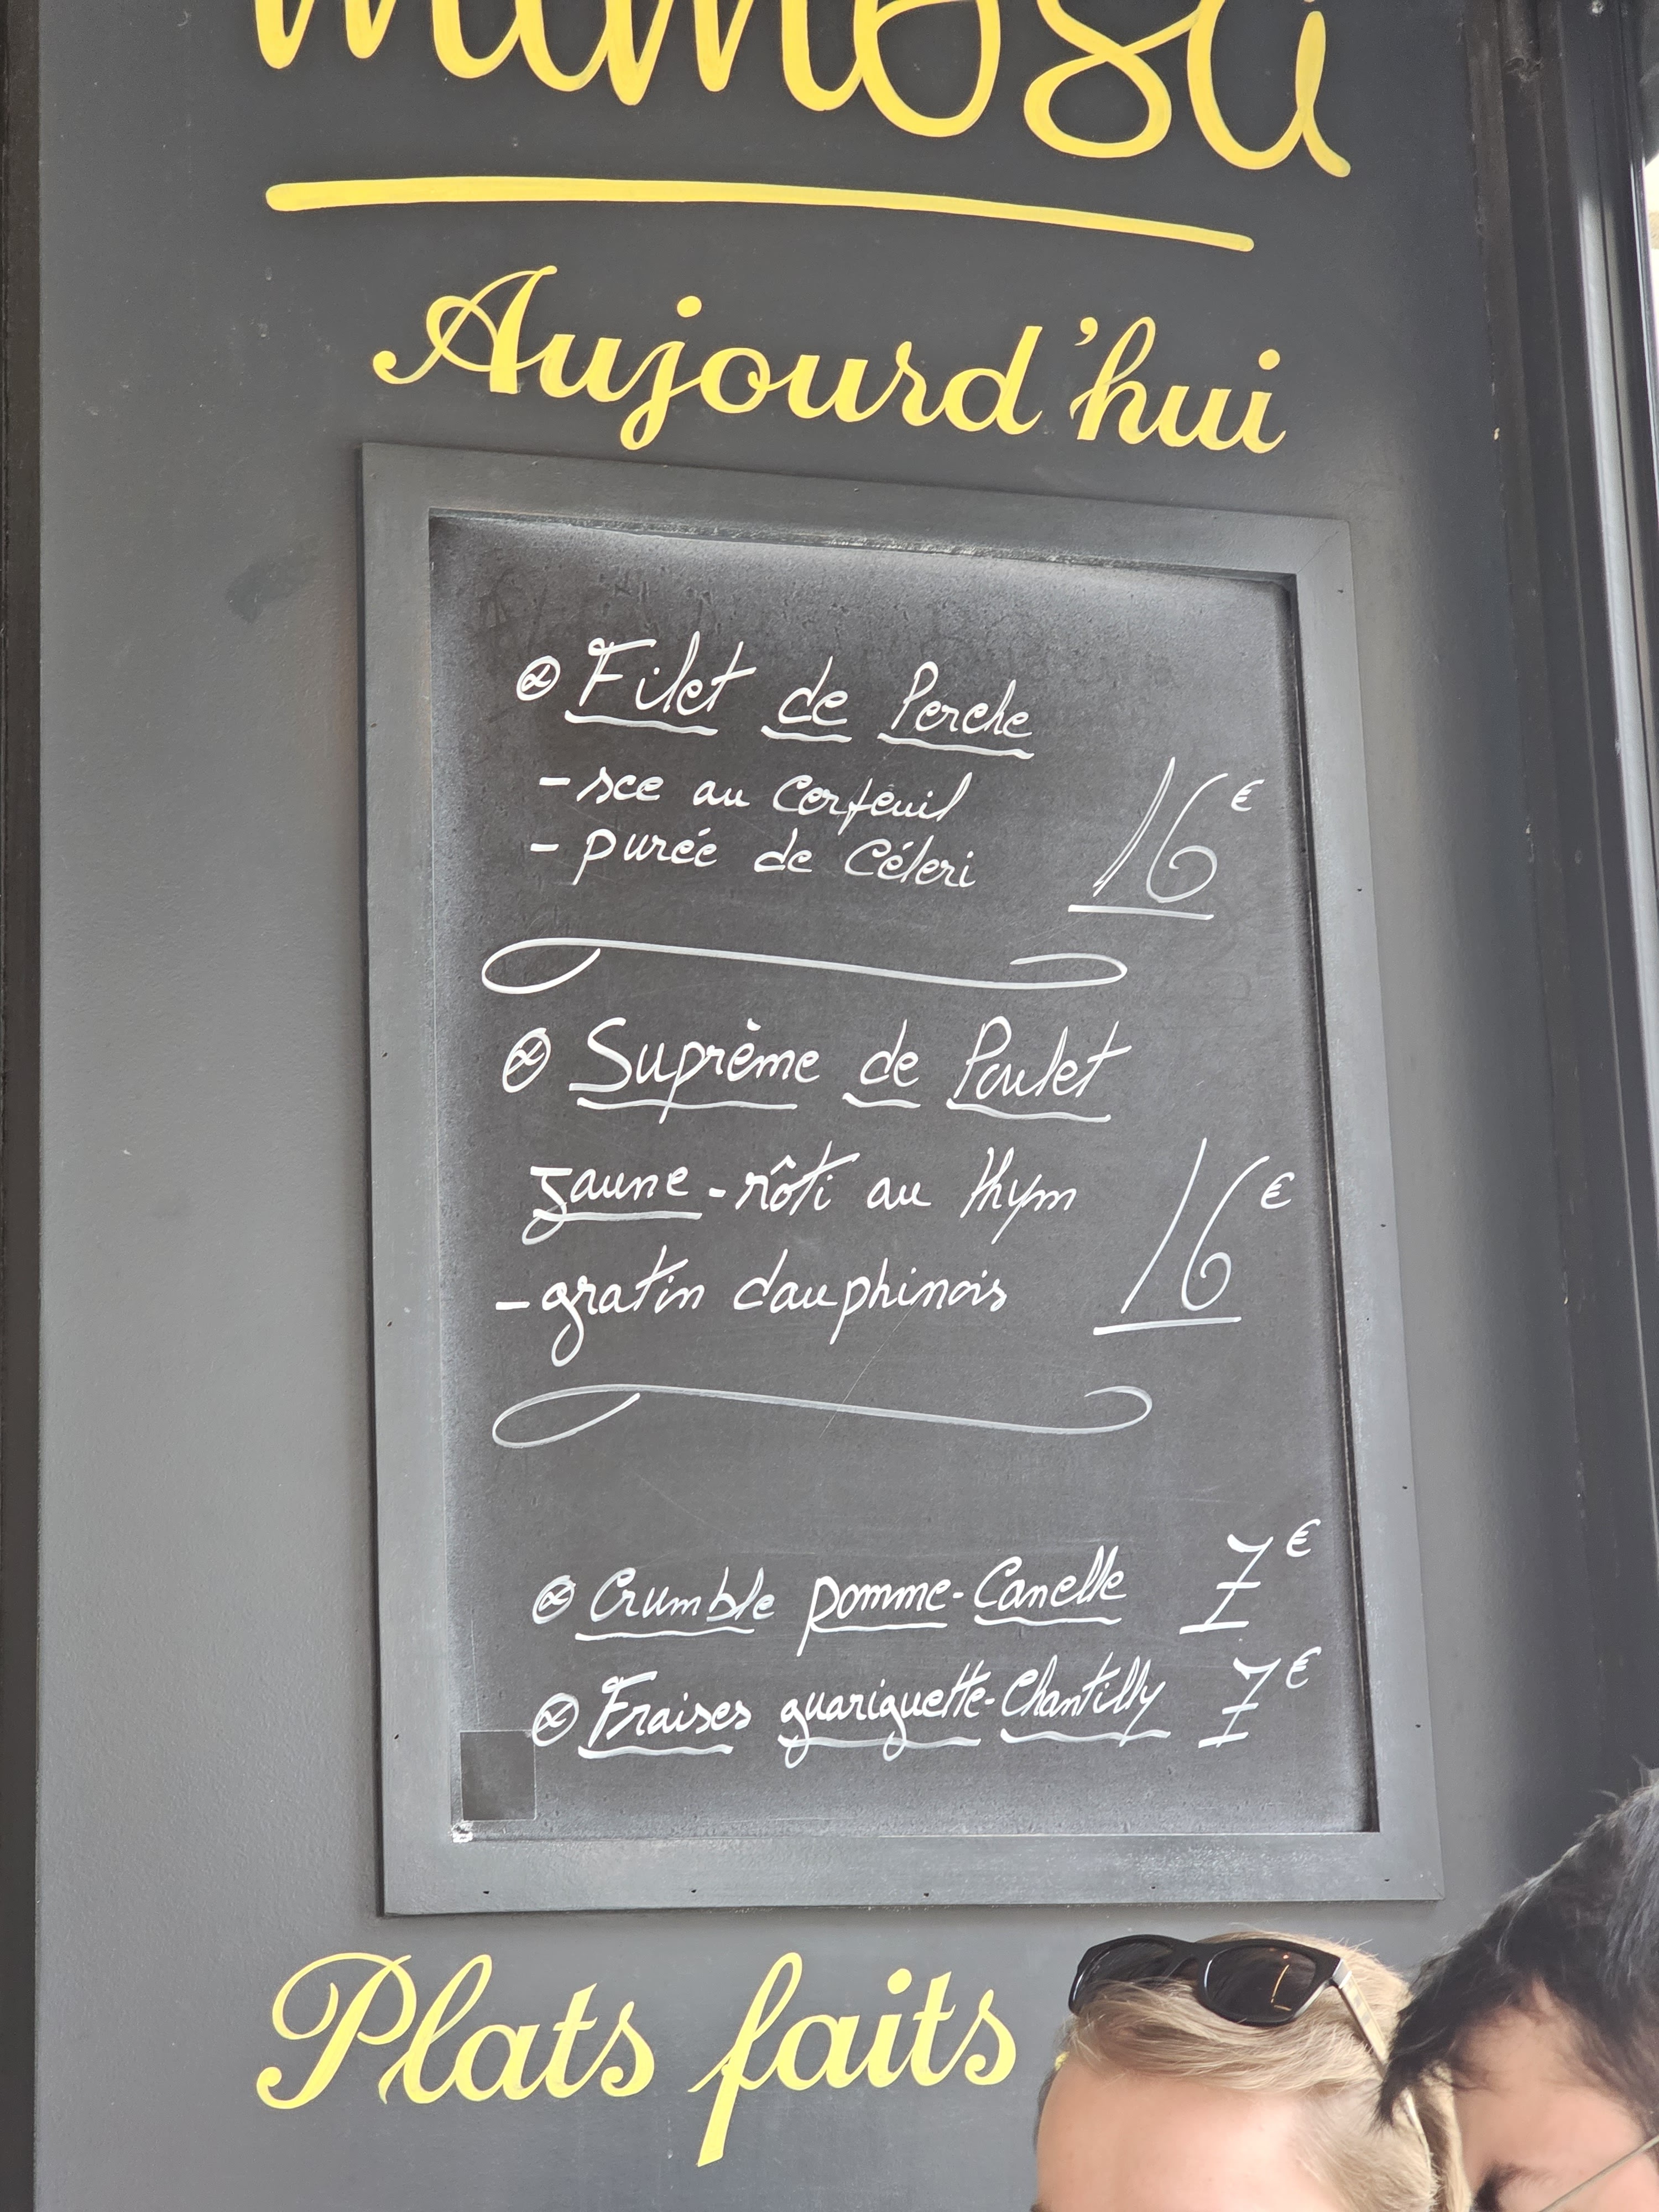 mimosa
Aujourd'hui
Filet de Perche
- sce au Cerfeuil
- purée de Céleri
16€
Suprème de Poulet
jaune - rôti au thym
- gratin dauphinois
16€
Crumble pomme-Canelle 7€
Fraises guariguette-Chantilly 7€
Plats faits